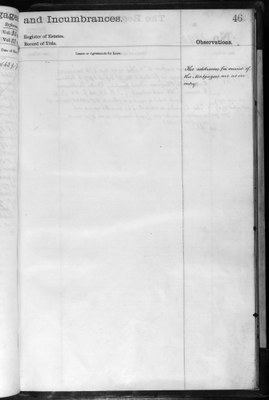 and Incumbrances.
46
Register of Estates.
Record of Title.
Observations.
Leases or Agreements for Lease.
The addresses for service of
the Mortgagees are as on